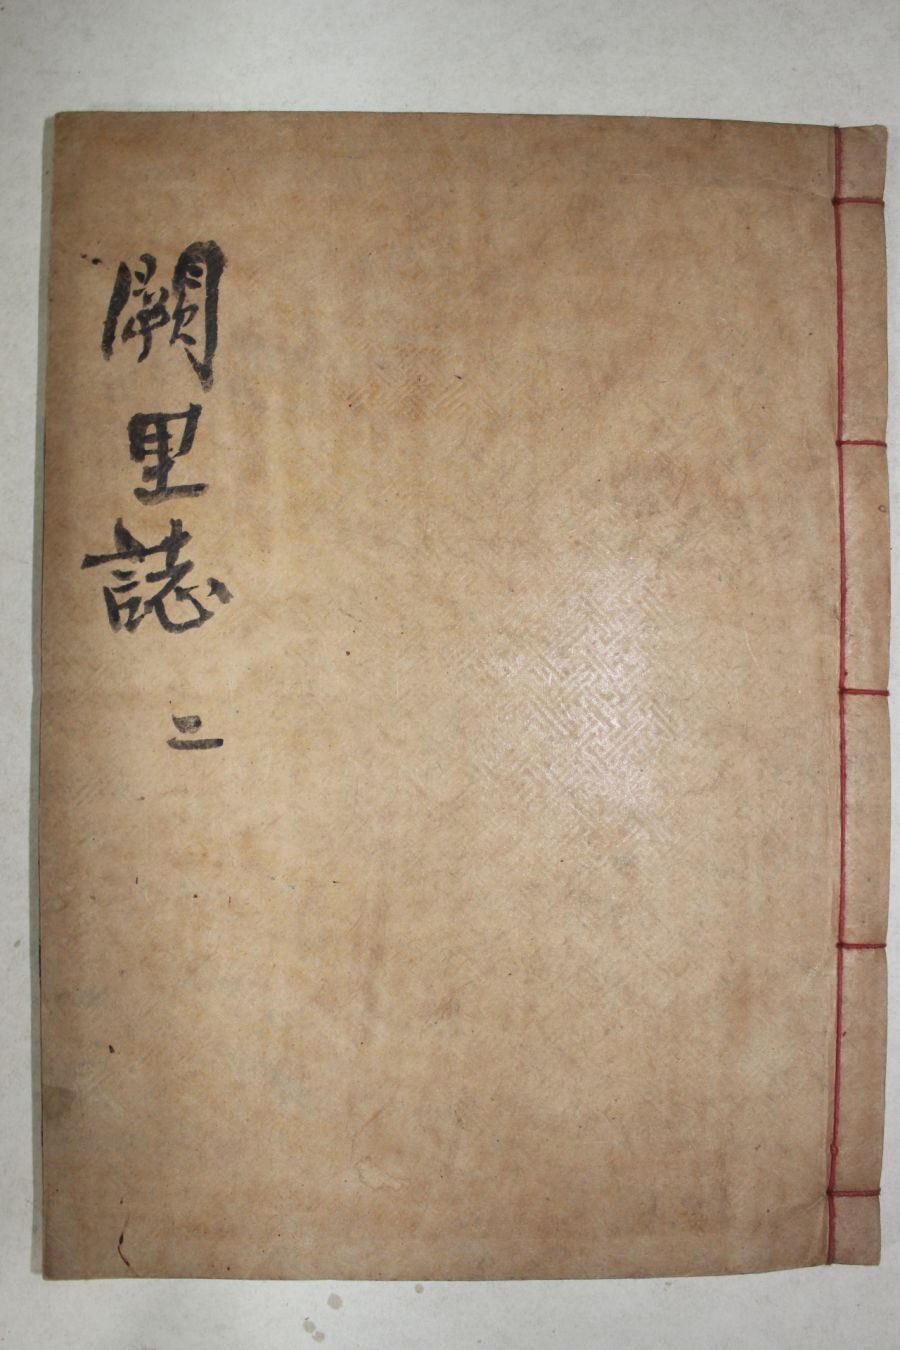 闕里誌 二